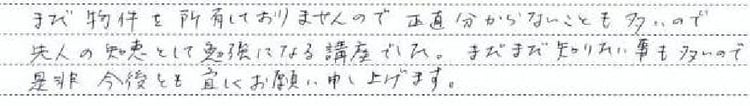 まだ物件を所有しておりませんので正直分からないことも多いので
先人の知恵として勉強になる講座でした。まだまだ知りたい事も多いので
是非今後とも宜しくお願い申し上げます。